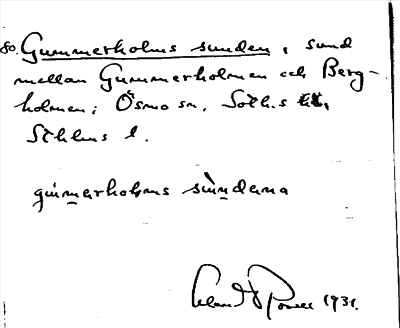 80. Gummerholms sunden, sund
mellan Gummerholmen och Berg-
holmen; Ösmo sn, Soth.s
Sthlms l.
gummerholms sùndena
1931.